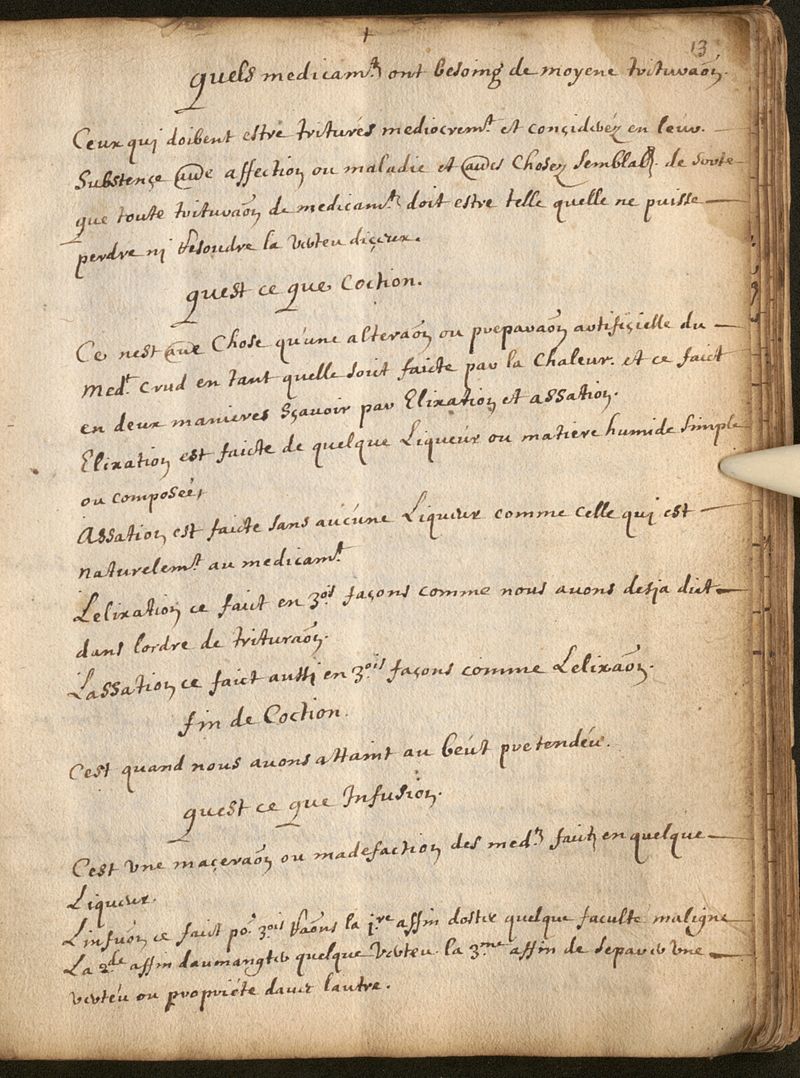 +
13
quels medicam.ts ont besoing de moyene trituraōn.
Ceux qui doibent estre triturés mediocrem.t et conçiderez en leur.
Substençe aude affection ou maladie et audes Chosez semblab. de sorte
que toute trituraōn de medicam.ts doit estre telle quelle ne puisse
perdre ni resoudre la verteu diçeux.
quest ce que Coction.
Ce nest aue Chose qu'une alteraōn ou preparaōn artifiçielle du
Med.t crud en tant quelle soit faicte par la Chaleur. et ce faict
en deux manieres sçavoir par Elixation et assation.
Elixation est faicte de quelque Liqueur ou matiere humide simple
ou composéé,
Assation est faicte sans aucune Liqueur comme celle qui est
naturelem.t au medicam.t
Lelixation ce faict en 3.ois façons comme nous avons desja dict
dans lordre de trituraōn.
Lassation ce faict aussi en 3.ois façons comme Lelixaōn.
fin de Coction.
Cest quand nous avons attaint au beut pretendéu.
quest ce que Infusion.
Cest une maçeraōn ou madefaction des med.ts faicts en quelque
Liqueur.
Linfuōn ce faict po.r 3.ois raōns la 1.re affin doster quelque faculte maligne
La 2.de affin daumangter quelque verteu. la 3.me affin de separer une
vertéu ou propriéte davec lautre.